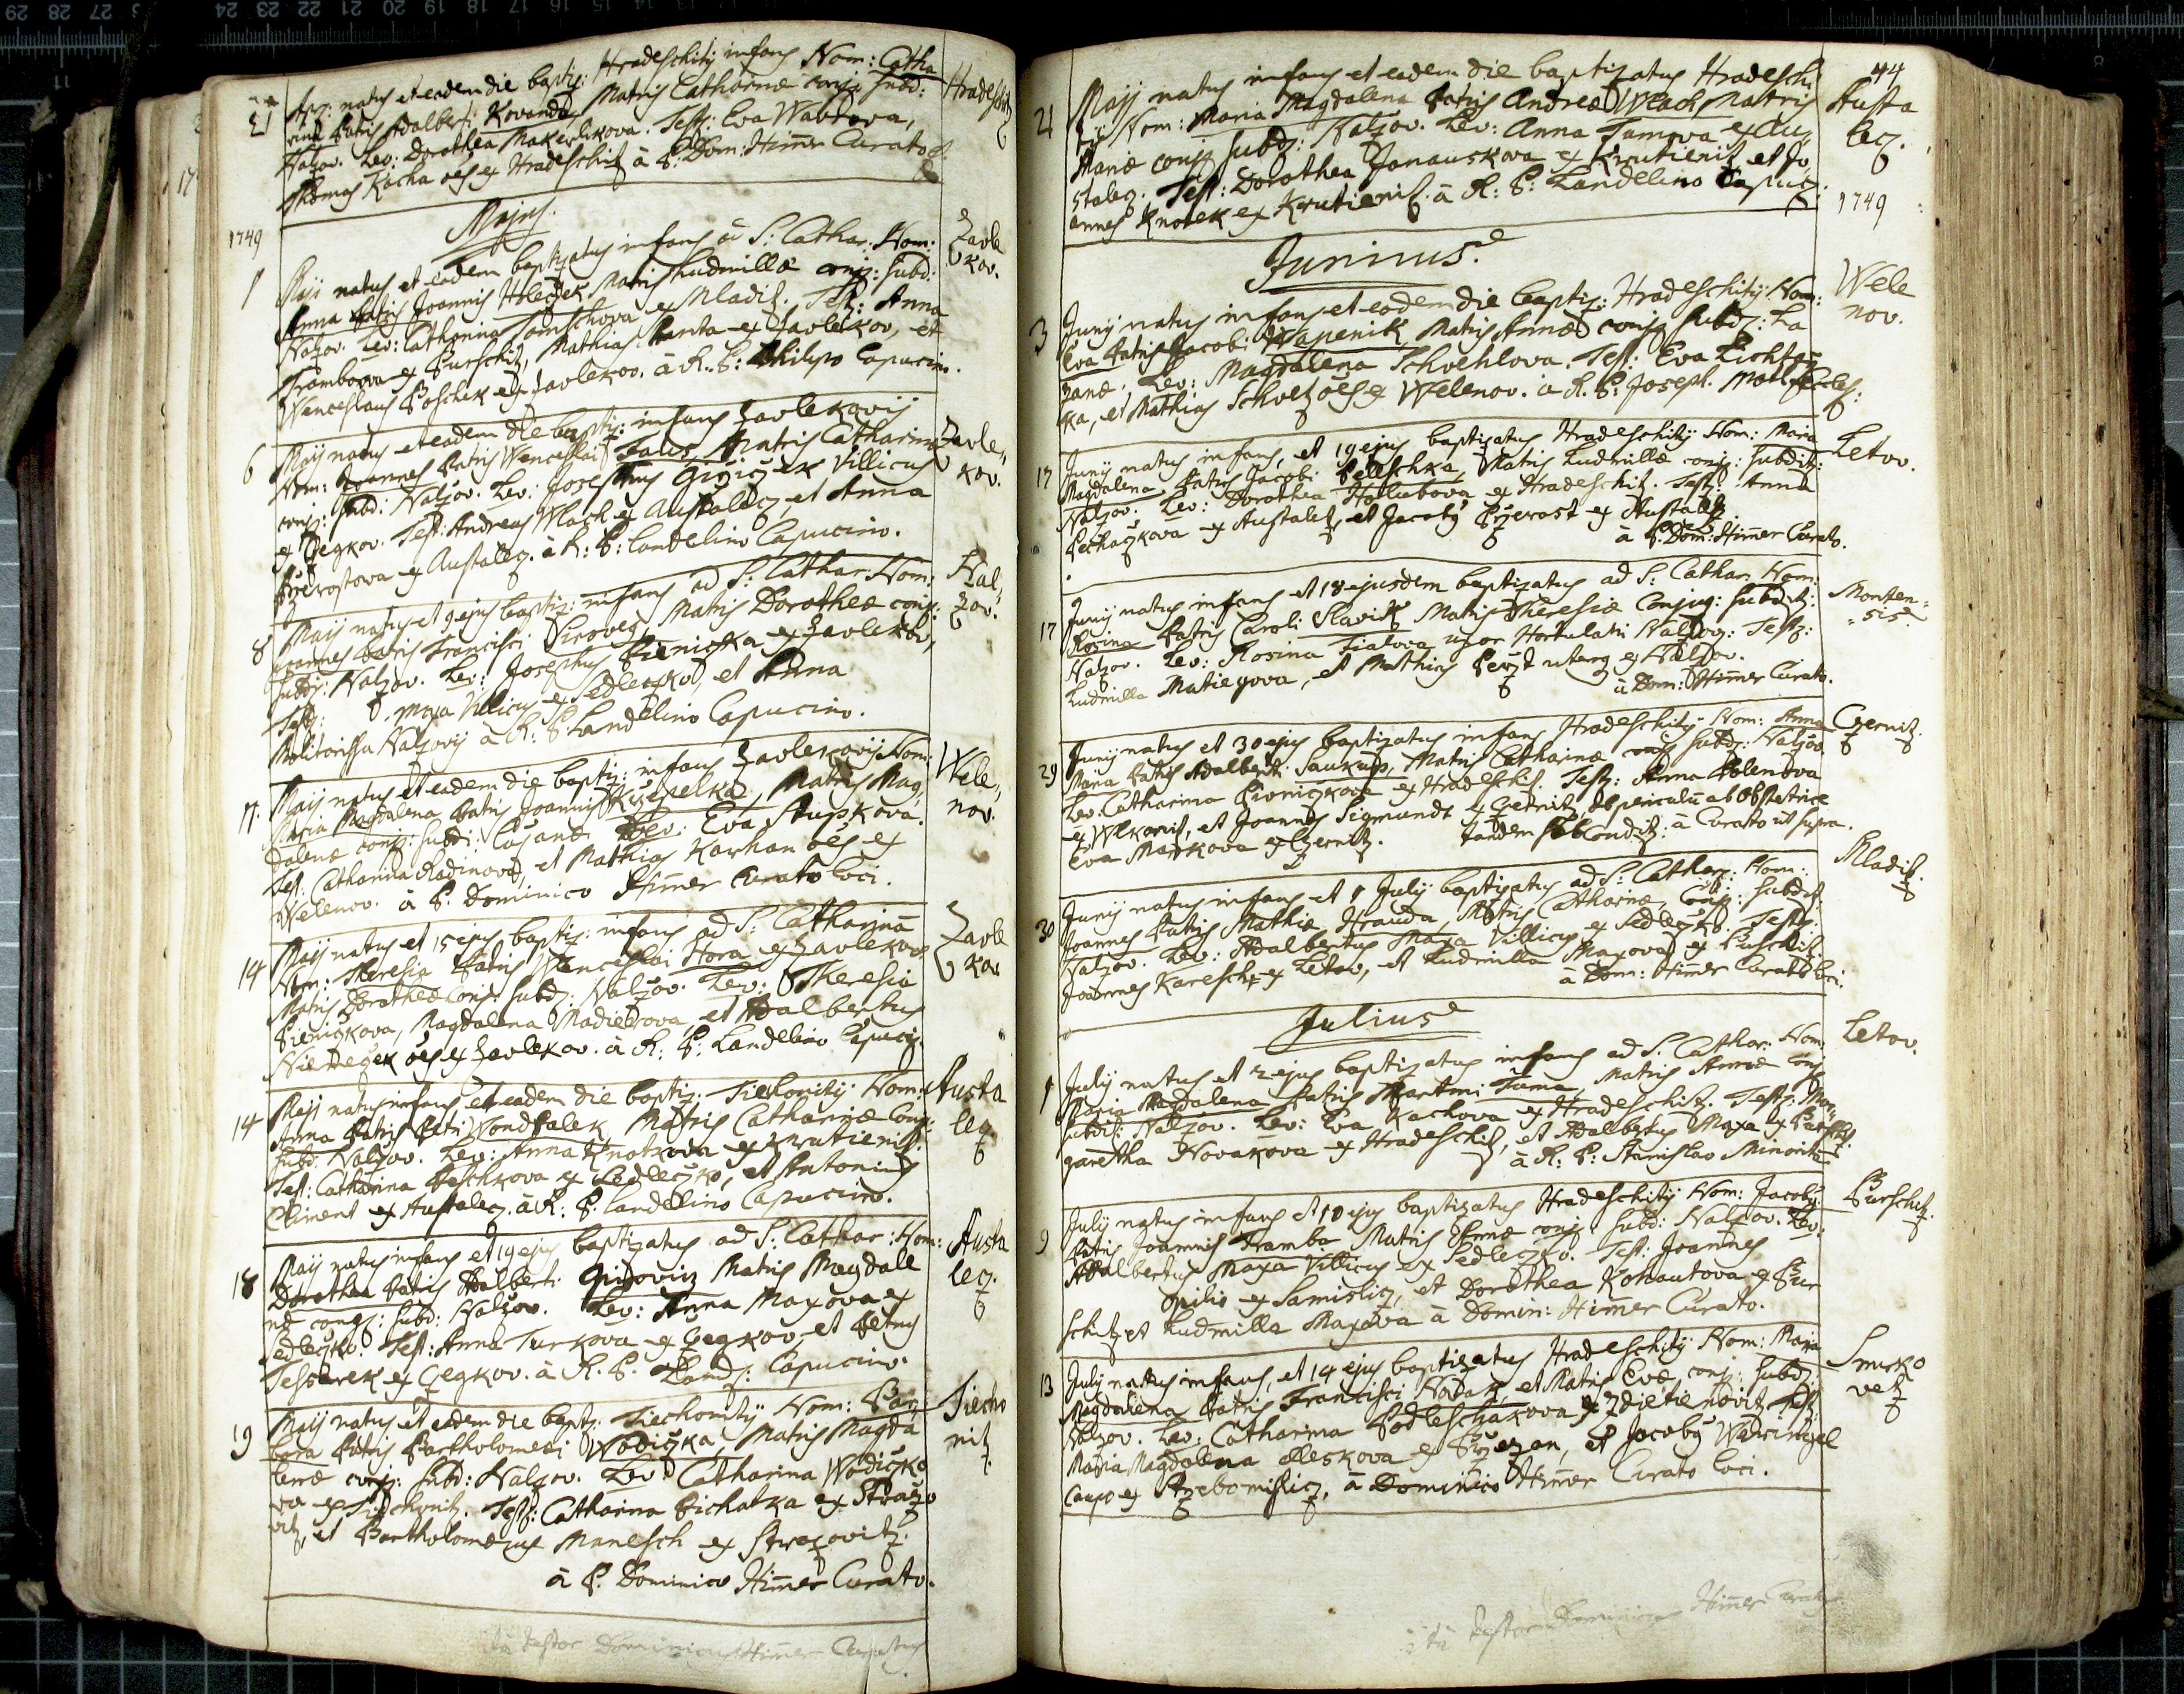 21 Apr: natus et eadem die baptiz: Hradeschitij infans Nom: Catha Hradeschitz
rina Patris Adalberti Kovanda Matris Catharinæ conj: subd:
Nalzov. Lev: Dorothea Makerlikova. Test: Eva Wabrova,
Thomas Kacha oēs ex Hradeschitz à P: Dom: Himer Curato
Majus.
1749
1 Maij natus et eadem baptizatus infans ad S: Cathar: Nom: Zavle
Anna Patris Joannis Holeczek Matris Ludmillæ conj: subd: kov.
Nalzov. Lev: Catharina Tomschova ex Mladitz. Test: Anna
Trambova ex Purschitz, Mathias Manta ex Zavlekov, et
Wenceslaus Poschek ex Zavlekov. à R: P: Philippo Capucino.
6 Maij natus et eadem die baptiz: infans Zavlekovij Zavle
Nom: Joannes Patris Wenceslai Faus, Matris Catharinæ kov.
conj: subd: Nalzov. Lev: Josephus Giziczek Villicus
ex Gegkov. Test: Andreas Wlach ex Austalecz, et Anna
Przerostova ex Austalecz. à R: P: Landelino Capucino.
8 Maij natus et 9 ejus baptiz: infans ad S: Cathar: Nom: Nal
Joannes Patris Francisci Sirovey, Matris Dorotheæ conj: zov.
subd: Nalzov. Lev: Josephus Pieniczka ex Zavlekov,
Test: Maxa Villicus ex Sedleczko, et Anna
Molitorissa Nalzovij à R: P: Landelino Capucino.
11. Maij natus et eadem die baptiz: infans Zavlekovij Nom: Wele
Maria Magdalena Patris Joannis Krzepelka, Matris Mag nov.
dalenæ conj: subd: Lazanæ Lev: Eva Stupkova.
Test: Catharina Radinova, et Mathias Karhan oēs ex
Welenov. à P: Dominico Himer Curato loci.
14 Maij natus et 15 ejus baptiz: infans ad S: Catharinā Zavle
Nom: Theresia Patris Wenceslai Hora ex Zavlekov kov
Matris Dorotheæ Conj: subd: Nalzov. Lev: Theresia
Pieniczkova, Magdalena Nadiedrova, et Adalbertus
Niededek oēs ex Zavlekov. à R: P: Landelino Capucin.
14 Maij natus infans et eadem die baptiz: Tiechonitij Nom: Austa
Anna Patris Petri Wondralek Matris Catharinæ Conj: lecz
subd: Nalzov. Lev: Anna Knotkova ex Krutienitz.
Test: Catharina Peschkova ex Sedleczko, et Antonius
Climent ex Austalecz. à R: P: Landelino Capucino.
18 Maij natus infans et 19 ejus baptizatus ad S: Cathar: Nom: Austa
Dorothea Patris Adalberti Gidovicz Matris Magdale lecz.
næ conj: subd: Nalzov. Lev: Anna Maxova ex
Sedleczko. Test: Anna Turkova ex Gegkov, et Petrus
Tessarek ex Gegkov. à R: P: Land: Capucino.
19 Maij natus et eadem die bapt: Tiechonitij Nom: Bar Tiecho
bora Patris Bartholomei Wodiczka, Matris Magda nitz
lenæ conj: subd: Nalzov. Lev: Catharina Wodiczko
va ex Tiechonitz. Test: Catharina Bichalka ex Strazo
vitz, et Bartholomæus Manesch ex Strazovitz.
à P: Dominico Himer Curato.
ita testor Dominicus Himer Curatus
44
21 Maij natus infans et eadem die baptizatus Hradeschi Austa
tij Nom: Maria Magdalena Patris Andreæ Wlach Matris lecz.
Mariæ conj: subd: Nalzov. Lev: Anna Tumova ex Au
stalecz. Test: Dorothea Janauskova ex Krutienitz et Jo
annes Knotek ex Krutienitz. à R: P: Landelino Capuc.
1749
Junius.
3 Junij natus infans et eadem die baptiz: Hradeschitij Nom: Wele
Eva Patris Jacobi Wapenik, Matris Annæ conj: subd: La nov.
zanæ. Lev: Magdalena Schvehlova. Test: Eva Lichte
ka, et Mathias Schvetz oēs ex Welenov. à R: P: Joseph.
17 Junij natus infans, et 19 ejus baptizatus Hradeschitij Nom: Maria Letov.
Magdalena Patris Jacobi Peleschka, Matris Ludmillæ conj: subdit:
Nalzov. Lev: Dorothea Holubova ex Hradeschitz. Test: Anna
Pechaczkova ex Austaletz, et Jacobus Przerost ex Austaletz.
à P: Dom: Himer Curato.
17 Junij natus infans et 18 ejusdem baptizatus ad S: Cathar: Nom: Monten
Rosina Patris Caroli Slavik Matris Theresiæ Conjug: subdit: sis.
Nalzov. Lev: Rosina Fialova uxor Hortulani Nalzov: Test:
Ludmilla Matiegova, et Mathias Peyzt uterq ex Nalzov.
à Dom: Himer Curato.
29 Junij natus et 30 ejus baptizatus infans Hradeschitij Nom: Anna Czernitz.
Maria Patris Adalberti Saukup, Matris Catharinæ conj: subd: Nalzov.
Lev: Catharina Pivniczkova ex Hradeschitz. Test: Anna Polenova
ex Wlkonitz, et Joannes Sigmundt ex Czernitz ob periculū ab Obstetrice
Eva Markova ex Czernitz. tandem sub Condit: à Curato ut supra.
30 Junij natus infans et 1 Julij baptizatus ad S: Cathar: Nom: Mladitz.
Joannes Patris Mathiæ Hrauda, Matris Catharinæ Conj: subdit:
Nalzov. Lev: Adalbertus Maxa Villicus ex Sedleczko. Test:
Joannes Karesch ex Letov, et Ludmilla Maxova ex Puschitz
à Dom: Himer Curato loci.
Julius
1 Julij natus et 2 ejus baptizatus infans ad S: Cathar: Nom: Letov.
Maria Magdalena Patris Martini Tuma, Matris Annæ conj:
subdit: Nalzov. Lev: Eva Kachova ex Hradeschitz. Test: Mar
garetha Novakova ex Hradeschitz, et Adalbertus Maxa ex Purschitz.
à R: P: Stanislao Minorita
9 Julij natus infans et 10 ejus baptizatus Hradeschitij Nom: Jacobus Purschitz.
Patris Joannis Tramba Matris Annæ conj: subd: Nalzov. Lev:
Adalbertus Maxa Villicus ex Sedleczko. Test: Joannes
Opilio ex Samislicz, et Dorothea Kohautova ex Pur
schitz et Ludmilla Maxova à Domin: Himer Curato.
13 Julij natus infans, et 14 ejus baptizatus Hradeschitij Nom: Maria Smrko
Magdalena Patris Francisci Nodak, et Matris Evæ conj: subd: vetz
Nalzov. Lev: Catharina Podleschakova ex Zdietienovitz Test:
Maria Magdalena elleskova ex Brzezan, et Jacobus
Caupo ex Trzebomislicz, à Dominico Himer Curato loci.
ita testor Dominicus Himer Curatus